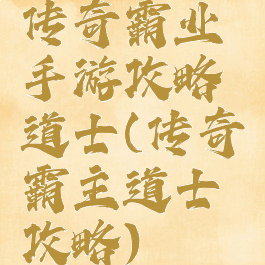 传奇霸业
手游攻略
道士(传奇
霸主道士
攻略)